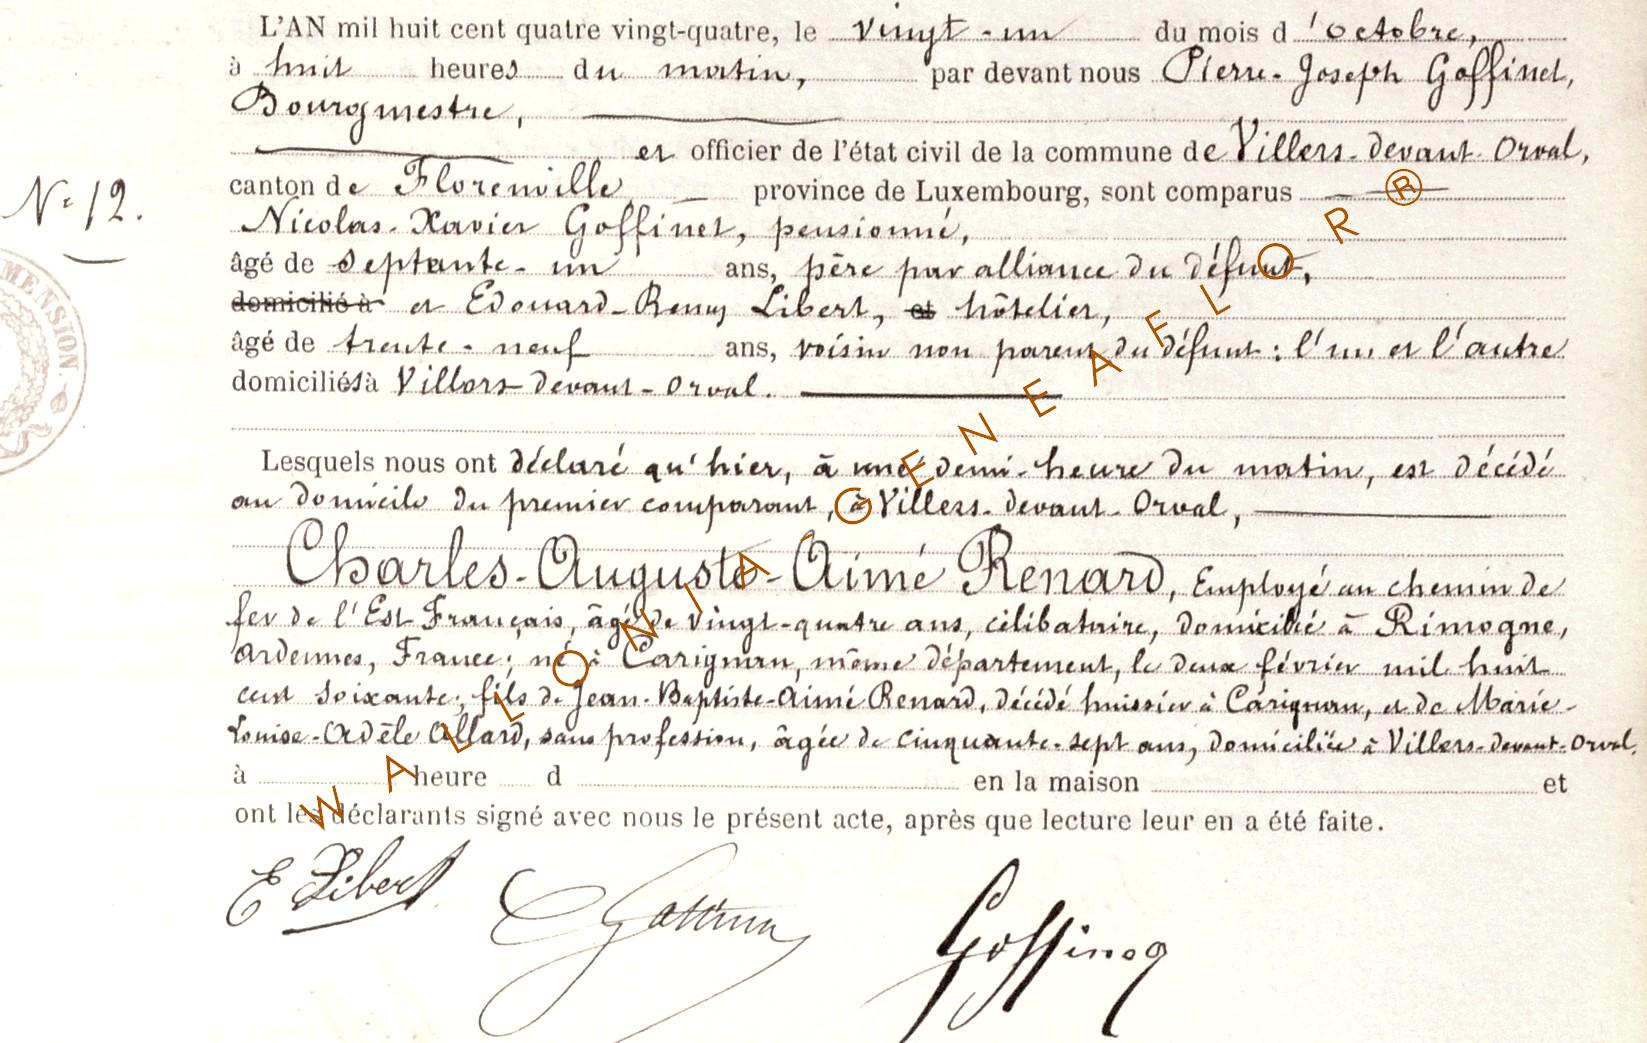 L'AN mil huit cent quatre vingt-quatre, le vingt-un du mois d'octobre,
à huit heures du matin, par devant nous Pierre-Joseph Goffinet,
Bourgmestre,
et officier de l'état civil de la commune de Villers-devant-Orval,
N° 12.
canton de Florenville, province de Luxembourg, sont comparus
Nicolas-Xavier Goffinet, pensionné,
âgé de septante-un ans, père par alliance du défunt,
domicilié à et Edouard-Remy Libert, et hôtelier,
âgé de trente-neuf ans, voisin non parent du défunt : l'un et l'autre
domiciliés à Villers-devant-Orval.
Lesquels nous ont déclaré qu'hier, à une demi-heure du matin, est décédé
au domicile du premier comparant, à Villers-devant-Orval,
Charles-Auguste-Aimé Renard, Employé au chemin de
fer de l'Est Français, âgé de vingt-quatre ans, célibataire, domicilié à Rimogne,
Ardennes, France; né à Carignan, même département, le deux février mil huit
cent soixante; fils de Jean-Baptiste-Aimé Renard, décédé huissier à Carignan, et de Marie-
Louise-Adèle Allard, sans profession, âgée de cinquante-sept ans, domiciliée à Villers-devant-Orval.
à heure d en la maison et
ont les déclarants signé avec nous le présent acte, après que lecture leur en a été faite.
E Libert Goffinet Goffinet
MENSION
WALLONIA - GENEAFLOR ®